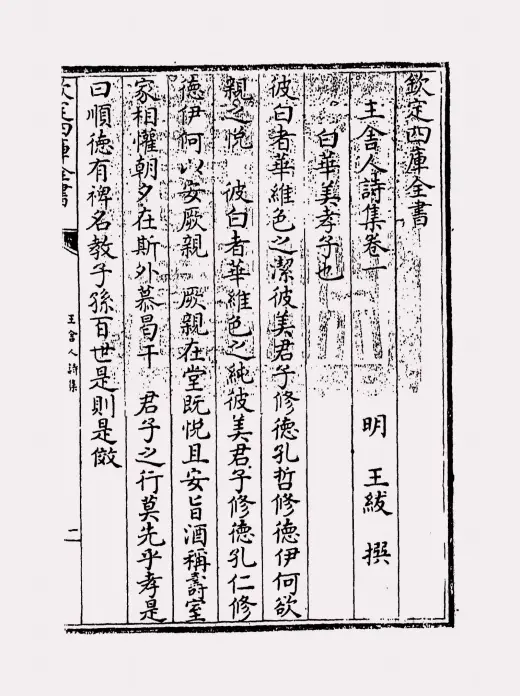 欽定四庫全書
王舍人詩集卷一 明 王紱 撰
白華美孝子也
彼白者華維色之潔彼美君子修德孔哲修德伊何欲
親之悅 彼白者華維色之純彼美君子修德孔仁修
德伊何以安厥親 厥親在堂既悅且安旨酒稱壽室
家相懽朝夕在斯外慕曷干 君子之行莫先乎孝是
曰順德有裨名教子孫百世是則是傚
欽定四庫全書
王舍人詩集